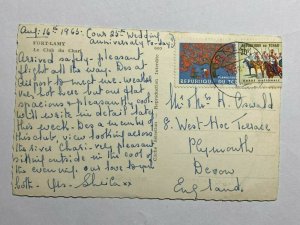 Aug: 14th 1966. (Our 25th Wedding
anniversary to-day)
FORT-LAMY
Le Club du Chari
Arrived safely - pleasant
flight all the way. Des at
airport to meet me. Weather
very hot here but our flat
spacious & pleasantly cool.
Will write in detail later
this week. Des a member of
this club, view looking across
the river Chari - very pleasant
sitting outside in the cool of
the evening over refreshments.
both - Yrs - Sheila xx
REPUBLIQUE DU TCHAD
REPUBLIQUE DU TCHAD
Mr & Mrs H. Oswald
9 West Hoe Terrace
Plymouth
Devon
England.